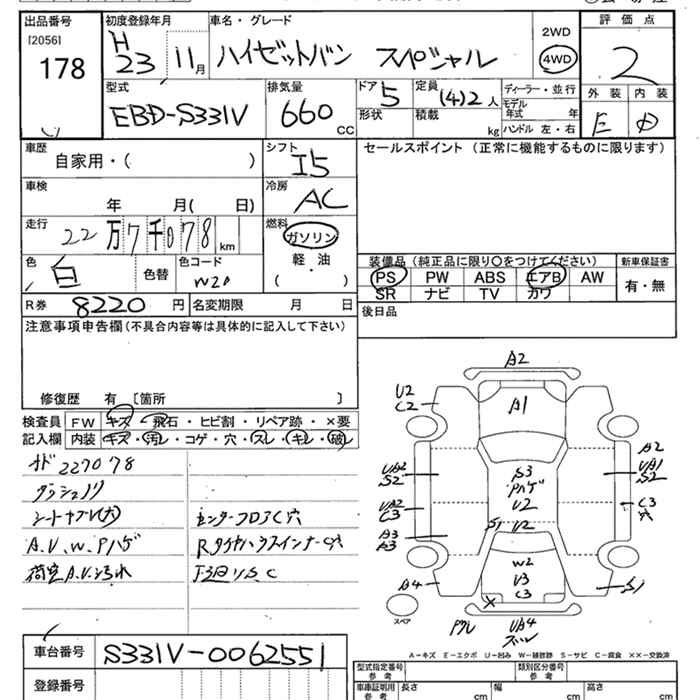 出品番号
[2056]
178
初度登録年月
H
23 11月
車名・グレード
ハイゼットバン スペシャル
2WD
4WD
評価点
2
外装 内装
E D
型式
EBD-S331V
排気量
660
CC
ドア
5
形状
定員
(4)2人
積載
kg
ディーラー・並行
モデル
年式 年
ハンドル 左・右
車歴
自家用・( )
シフト
I5
セールスポイント(正常に機能するものに限ります)
車検
年 月( 日)
冷房
AC
走行
22万7千078
km
燃料
ガソリン
軽・油
( )
色
白
色替
色コード
W20
装備品(純正品に限り〇をつけてください)
PS PW ABS エアB AW
SR ナビ TV カワ
新車保証書
有・無
R券 8220円
名変期限 月 日
後日品
注意事項申告欄(不具合内容等は具体的に記入して下さい)
修復歴 有 〔箇所 〕
検査員
記入欄
FW キズ・飛石・ヒビ割・リペア跡・×要
内装 キズ・汚レ・コゲ・穴・スレ・キレ・破レ
メド 227078
ダッシュノリ
シートヤブレ(大)
A.U.W.Pハゲ
荷室A.U.ヨゴれ
センターフロアC穴
Rタイヤハウスインナー C穴
下回りS.C
A2
U2
C2
A1
UA2
S2
UA2
C3
A3
A3
A4
S3
Pハゲ
U2
S1 U2
W2
U3
C3
×
A2
UA1
S2
C3
穴
S1
UA4
スペア
A-キズ E-エクボ U-凹み W-補修跡 S-サビ C-腐食 ××-交換済
車台番号
S331V-0062551
登録番号
型式指定番号
参考
類別区分番号
参考
車庫証明用
参考
長さ
cm
幅
cm
高さ
cm